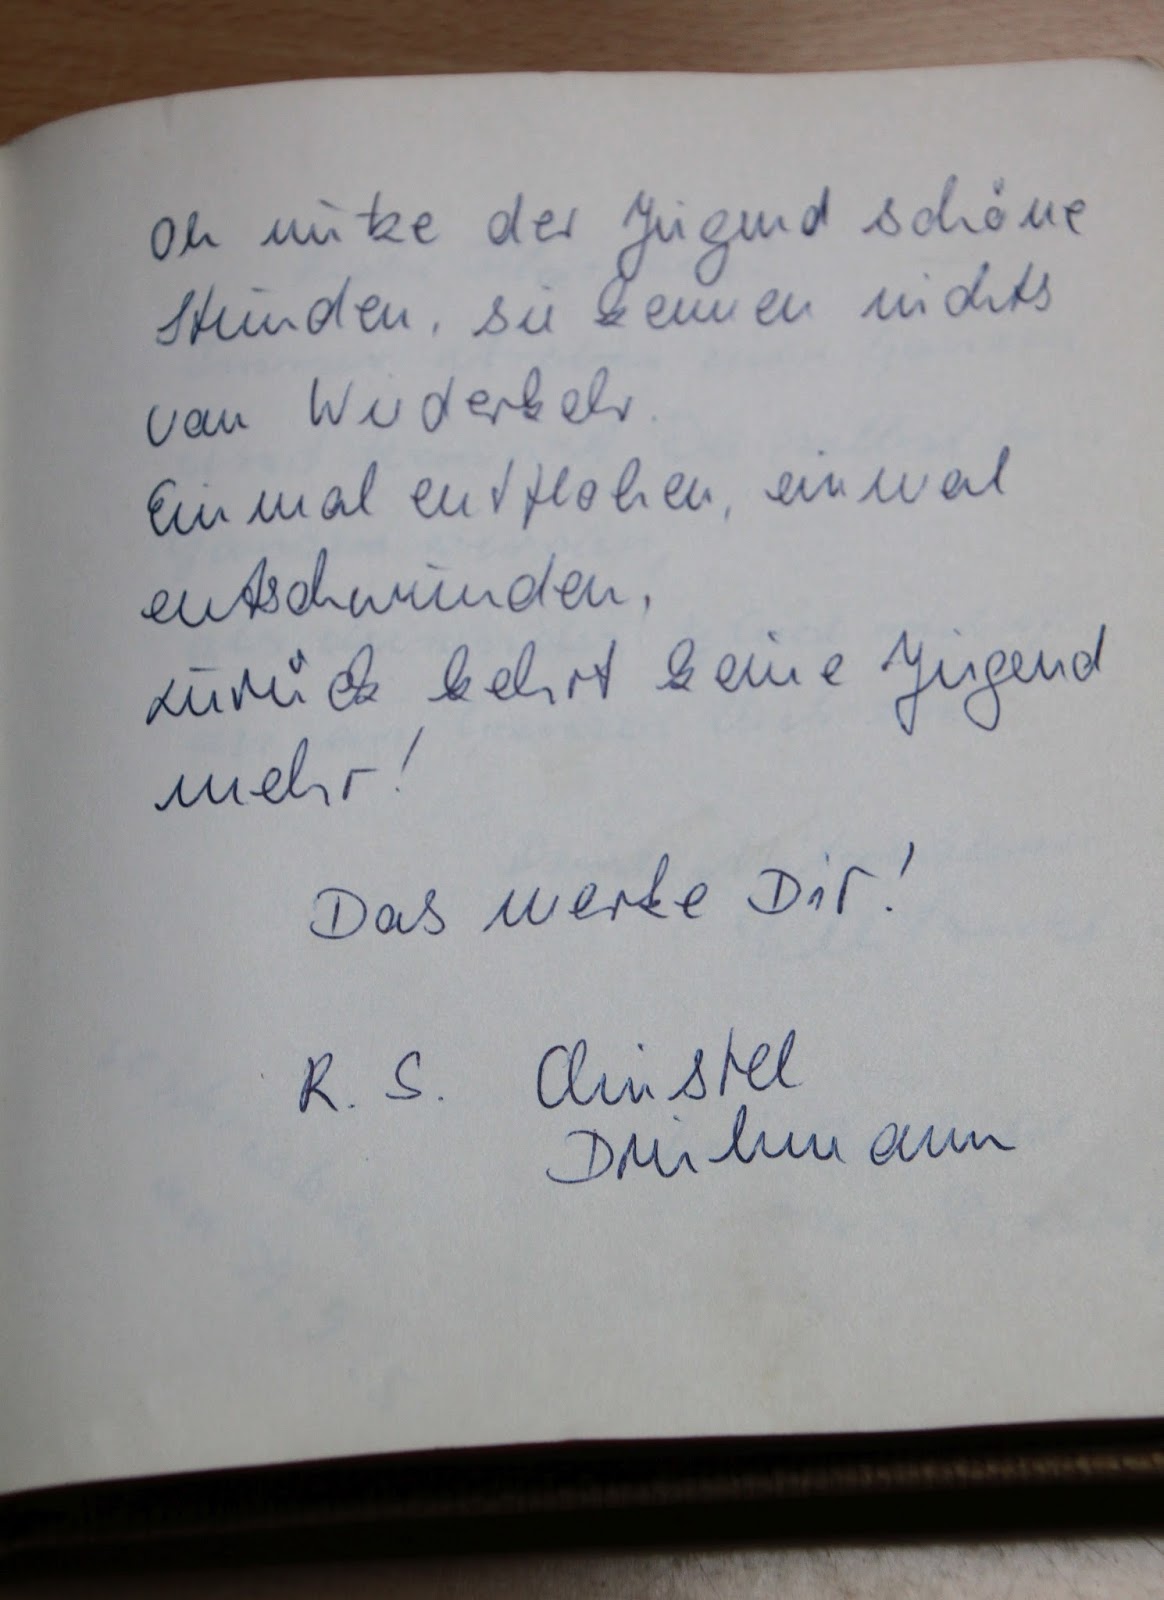 Oh nütze der Jugend schöne
Stunden, sie kennen nichts
von Wiederkehr.
Einmal entflohen, einmal
entschwunden,
zurück kehrt keine Jugend
mehr!
Das merke Dir!
R. S. Christel